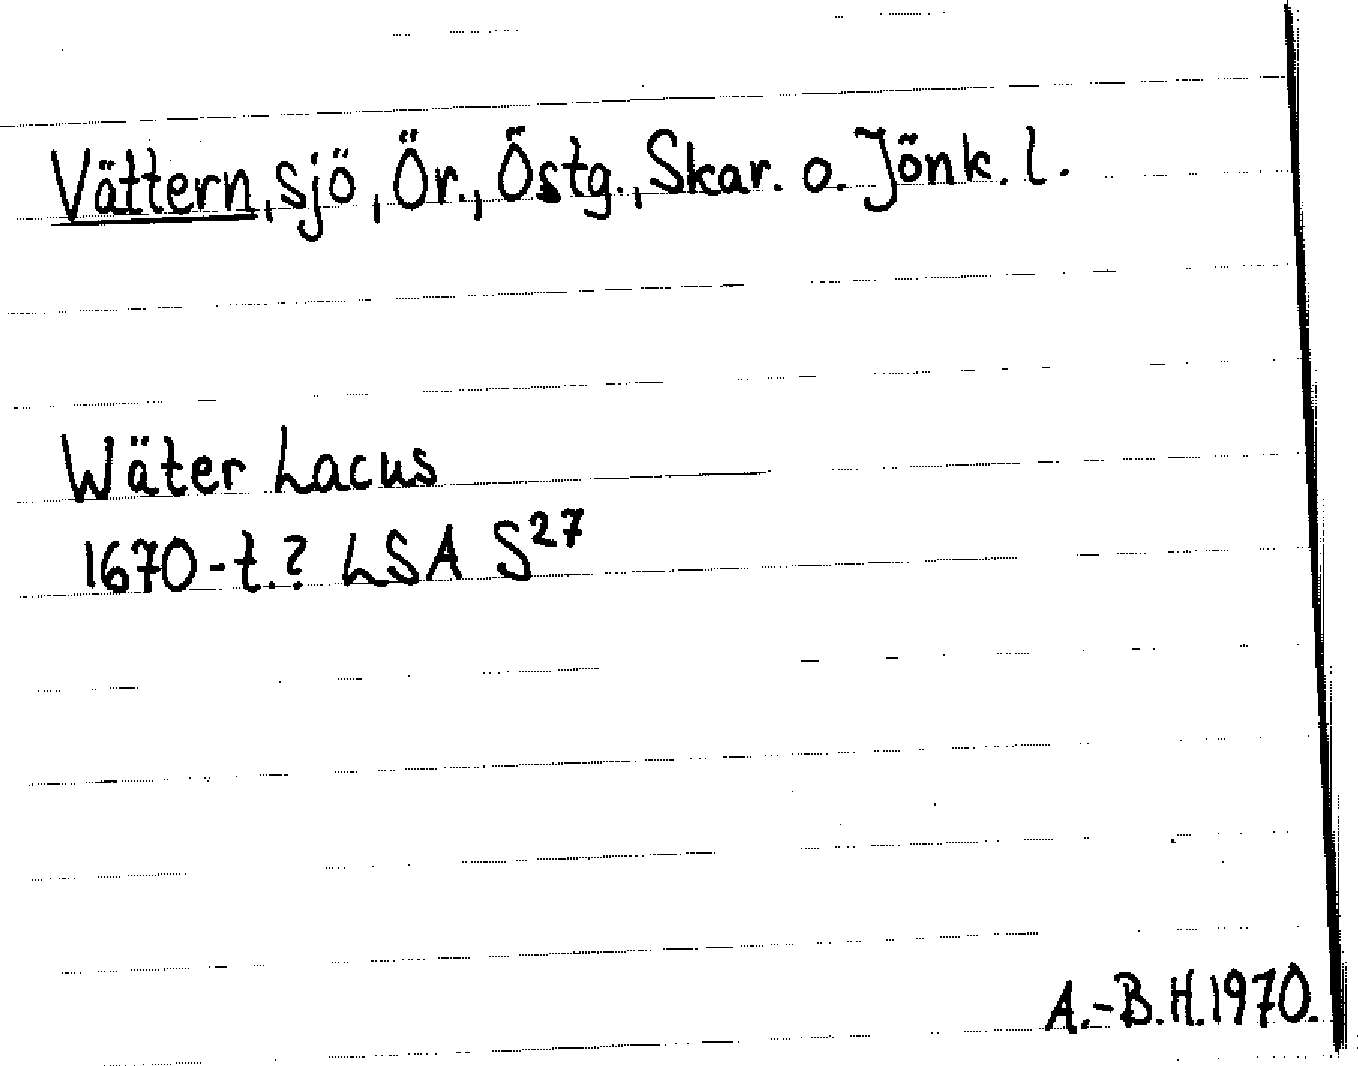 Vättern, sjö, Ör., Östg., Skar. o. Jönk. l.
Wäter Lacus
1670-t.? LSA S²⁷
A.-B.H.1970.